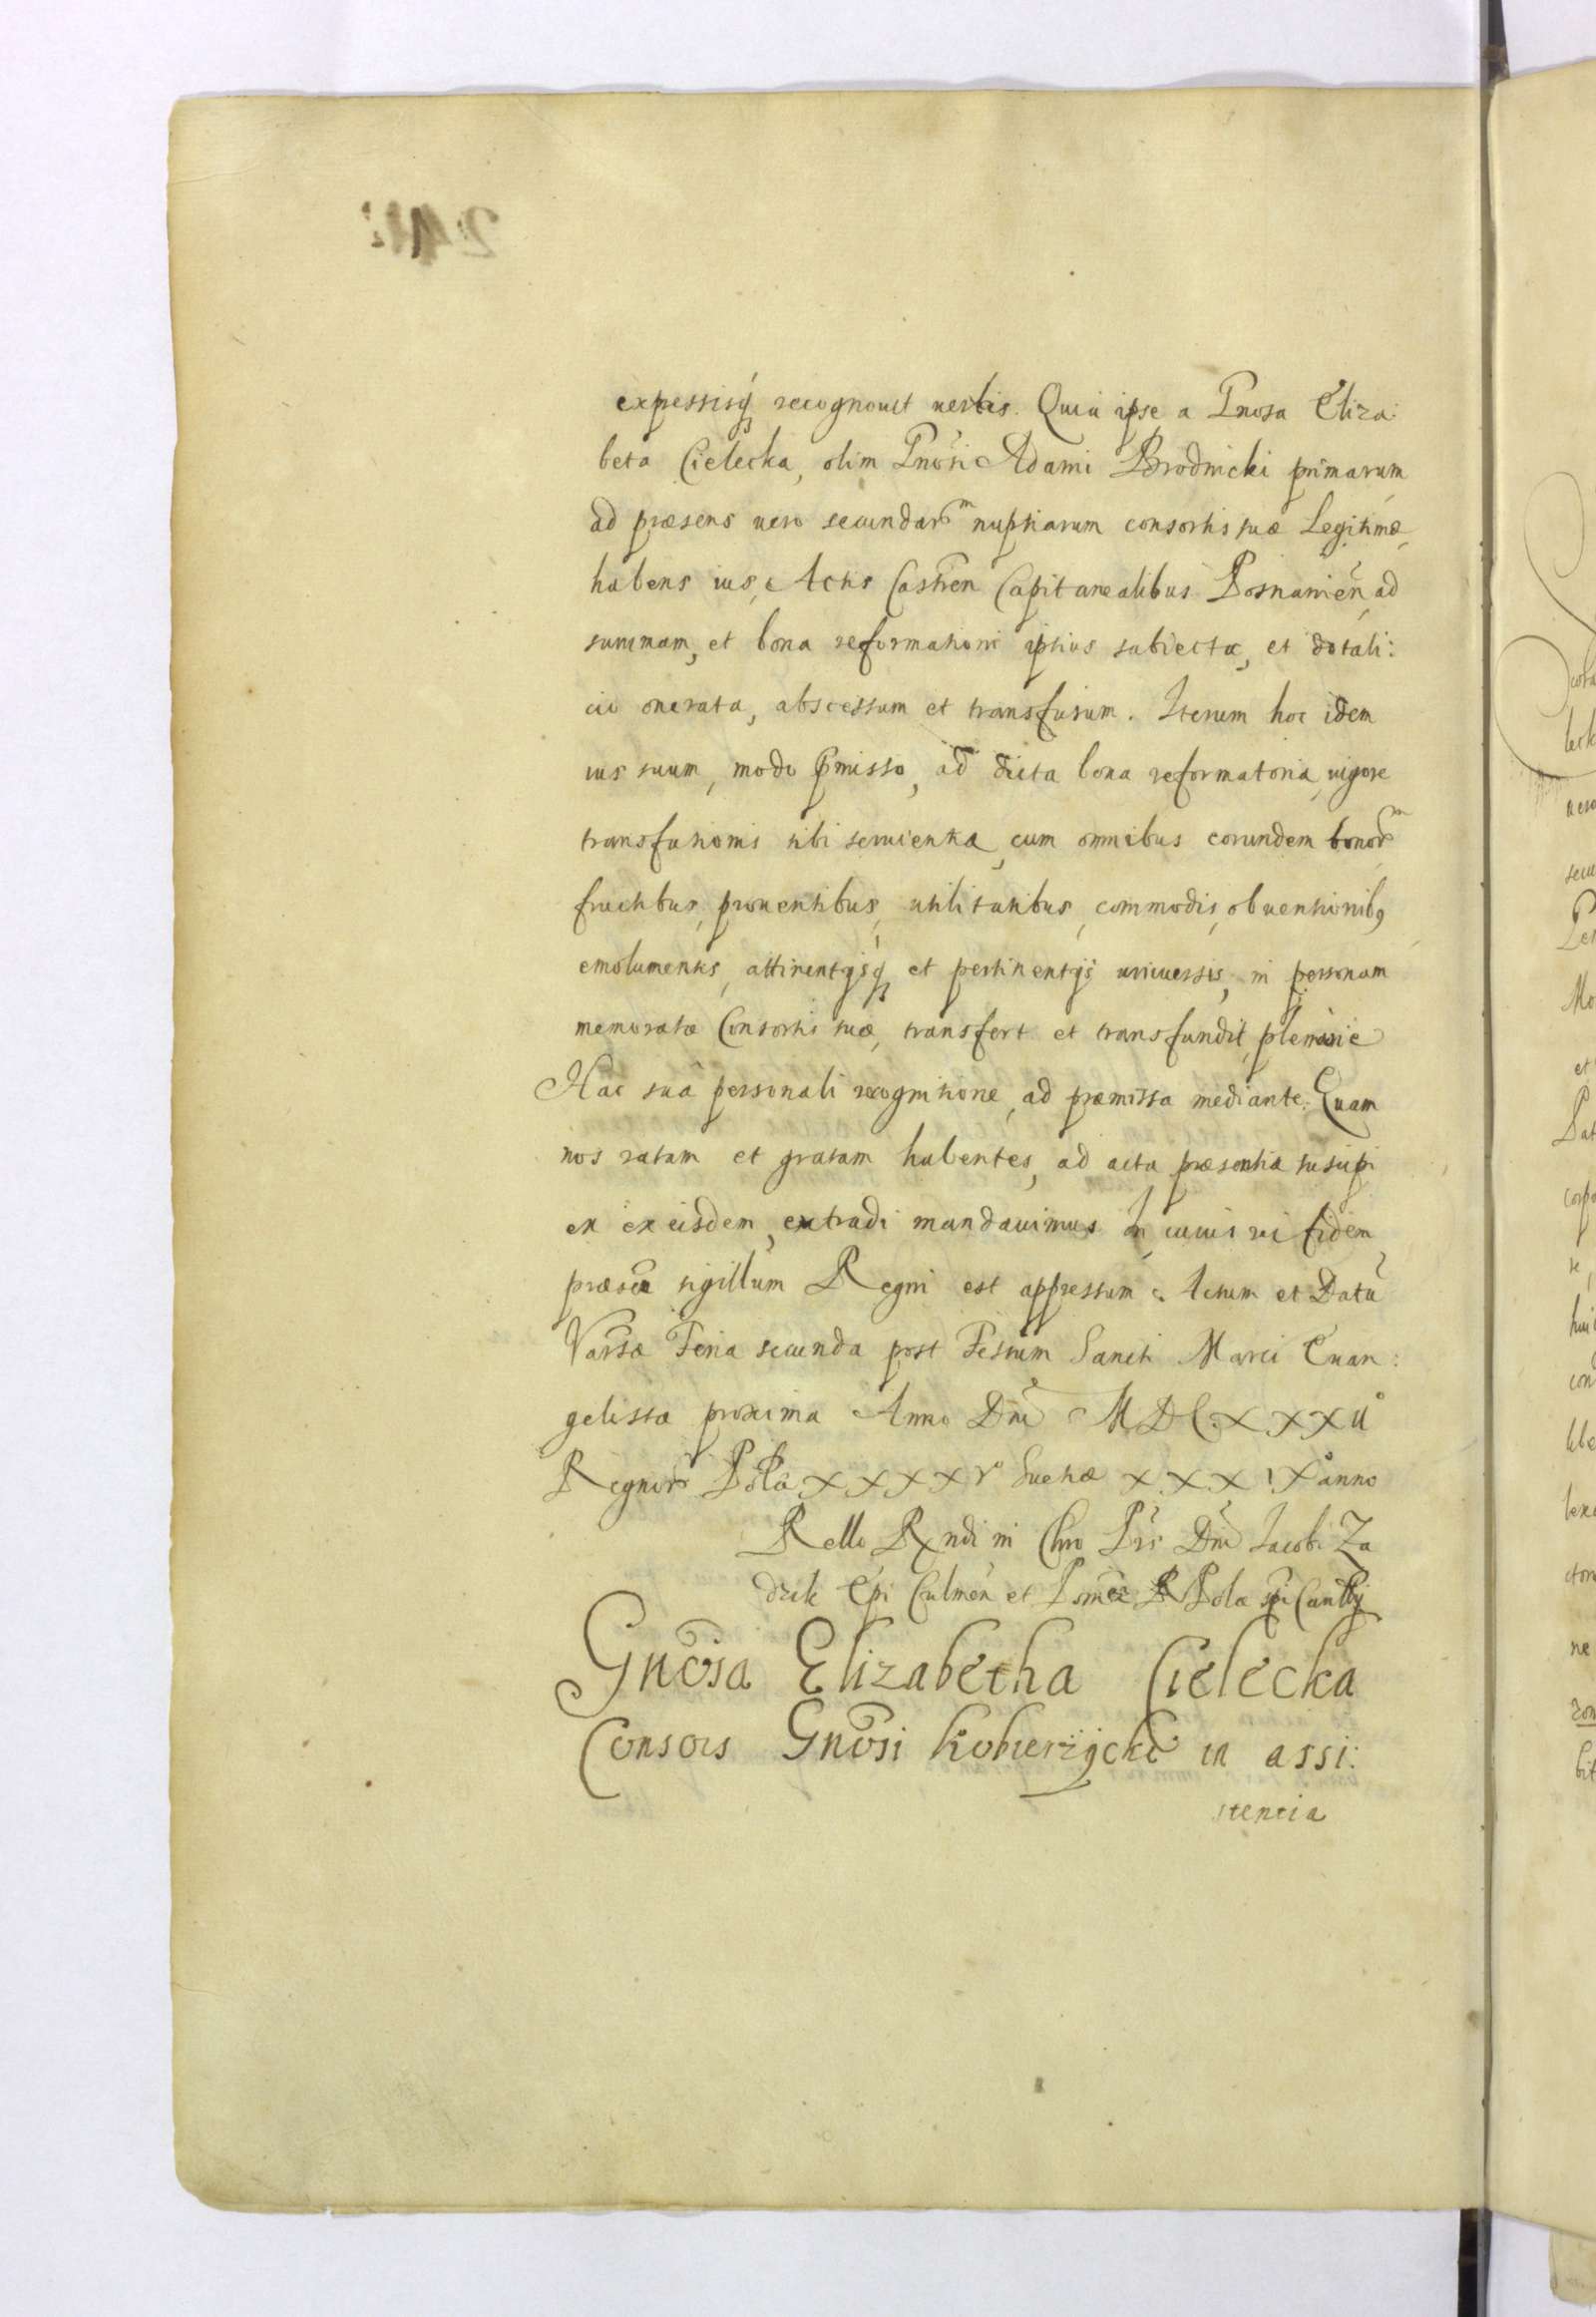 expressisq́ recognouit uerbis. Quia ipse a Gnosa Eliza:
beta Cielecka, olim Gnosi Adami Brodnicki primarum
ad præsens uero secundarm nuptiarum consortis suæ Legitimæ,
habens ius, Actis Castren Capitanealibus Posnanien, ad
summam, et bona reformationi ipsius subiecta, et dotali:
cio onerata, abscessum et transfusum. Iterum hoc idem
ius suum, modo pmisso, ad dicta bona reformatoria, uigore
transfusionis sibi seruientia, cum omnibus eorundem bonorm
fructibus, prouentibus, utilitatibus, commodis, obuentionibq
emolumentis, attinentÿsq́ et pertinentÿs uniuersis, in personam
memoratæ Consortis suæ, transfert et transfundit, plenarie
Hac sua personali recognitione, ad præmissa mediante. Quam
nos ratam et gratam habentes, ad acta præsentia suscipi
ex eisdem, extradi mandauimus In cuius rei fidem,
sigillum Regni est appressum. Actum et Datu
Varsæ Feria secunda post Festum Sancti Marci Euan:
gelistæ proxima Anno Dni M. DC. XXXIIo
Regnor Pola XXXXVo Suetiæ XXXIXo anno
Rello Rxndi in Chro Pris Dni Iacobi Za
dzik Epi Culmen et Pomez R Pola spi Canllrÿ
Gnosa Elizabetha Cielecka
Consors Gnosi Kobierzÿcki in assi:
stencia